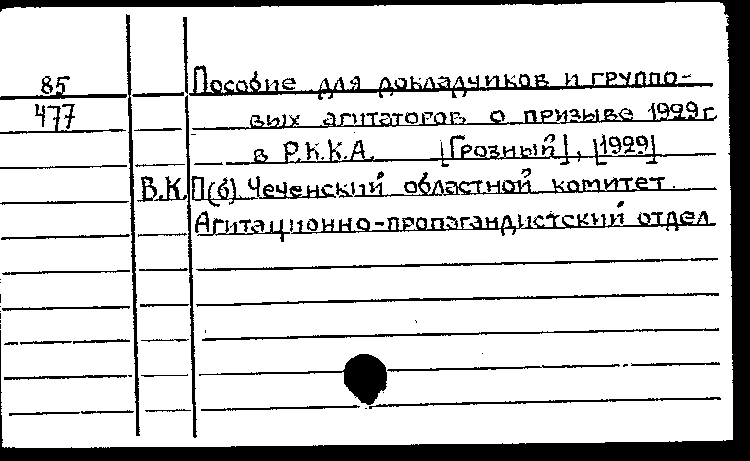 85 Пособие для докладчиков и группо-
477 вых агитаторов о призыве 1929 г.
в Р.К.К.А. [Грозный], [1929]
В.К.П(б) Чеченский областной комитет.
Агитационно-пропагандистский отдел